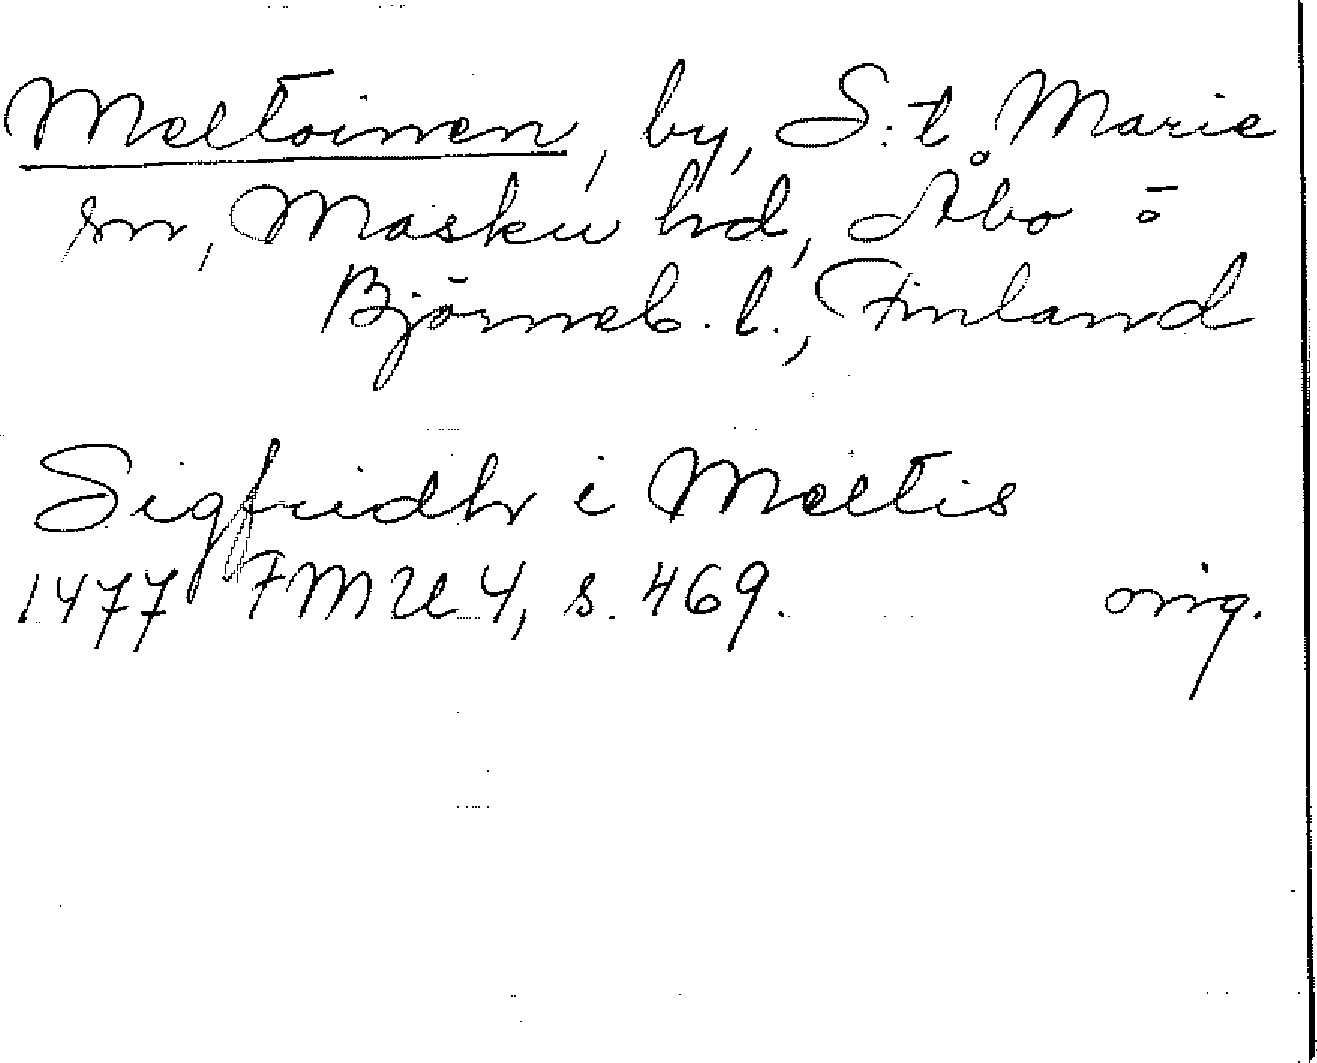 Meltoinen, by, S:t Marie
sn, Masku hd, Åbo o
Björneb. l., Finland
Sigfridh i Meltis
1477 FMU 4, s. 469. orig.